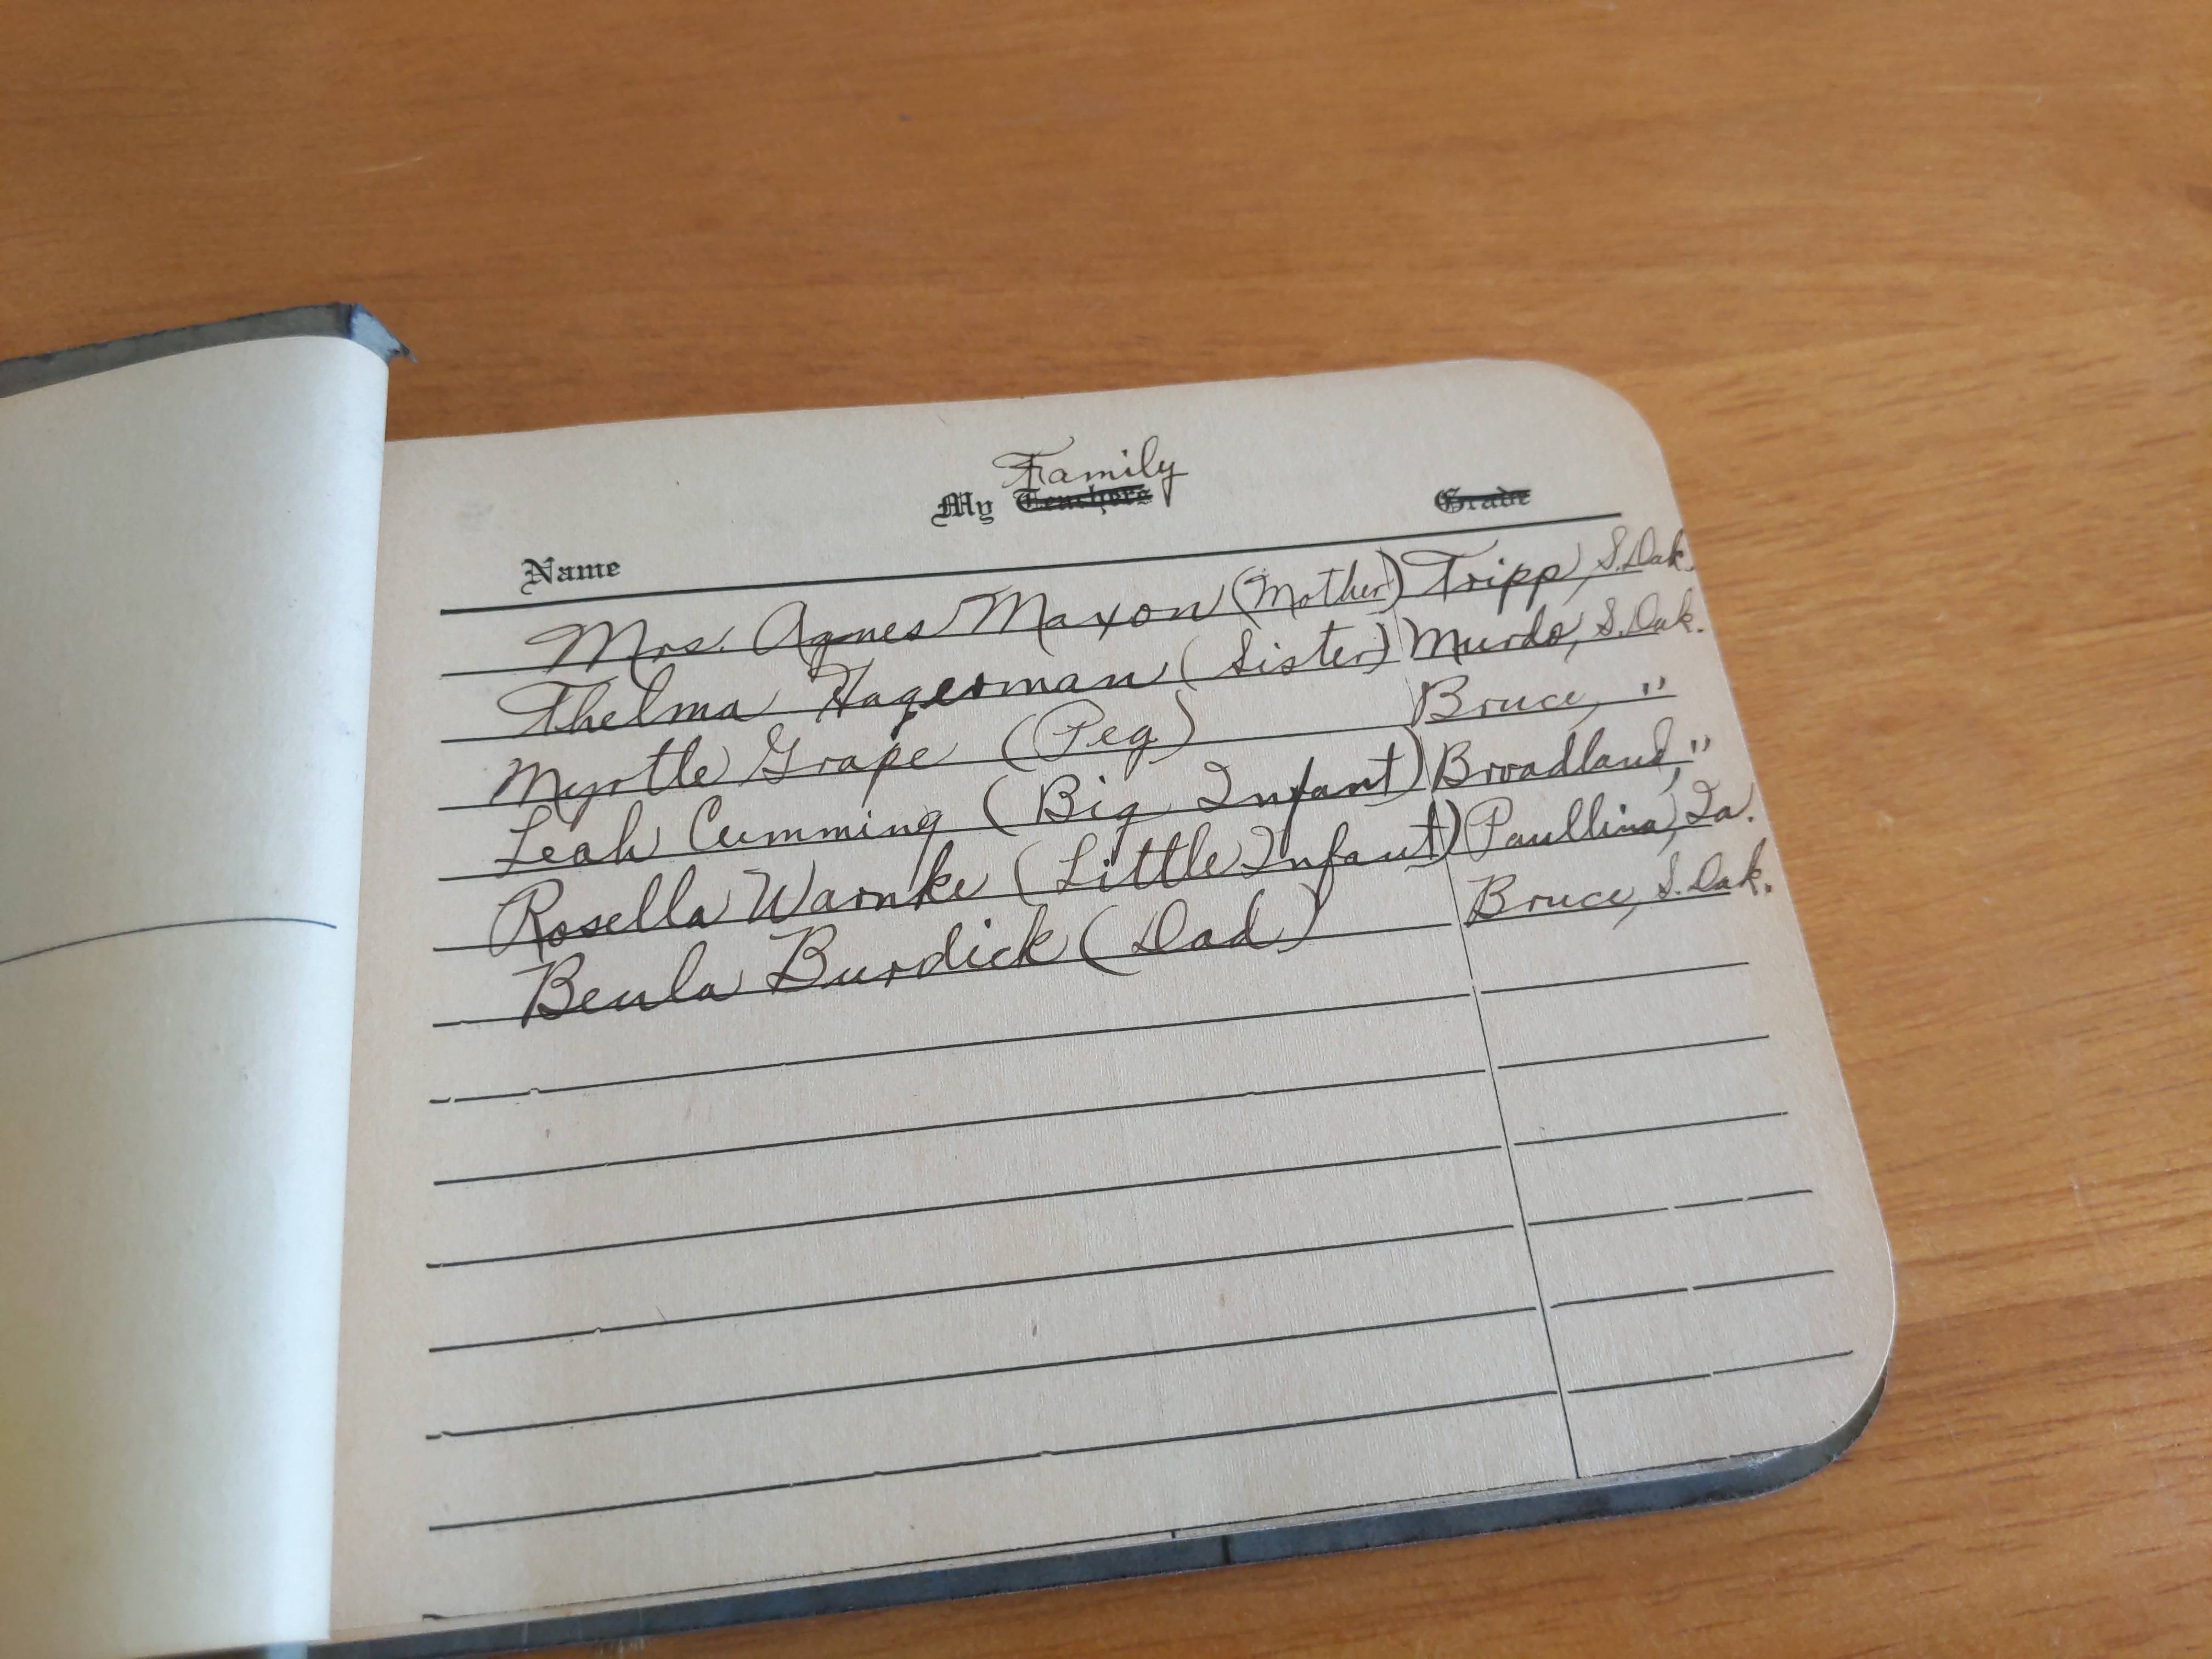 Family
My Teachers Grade
Name
Mrs. Agnes Maxon (Mother) Tripp, S. Dak.
Thelma Hagerman (Sister) Murdo, S. Dak.
Myrtle Grape (Peg) Bruce, "
Leah Cumming (Big Infant) Broadland, "
Rosella Warnke (Little Infant) Paullina, Ia.
Beula Burdick (Dad) Bruce, S. Dak.